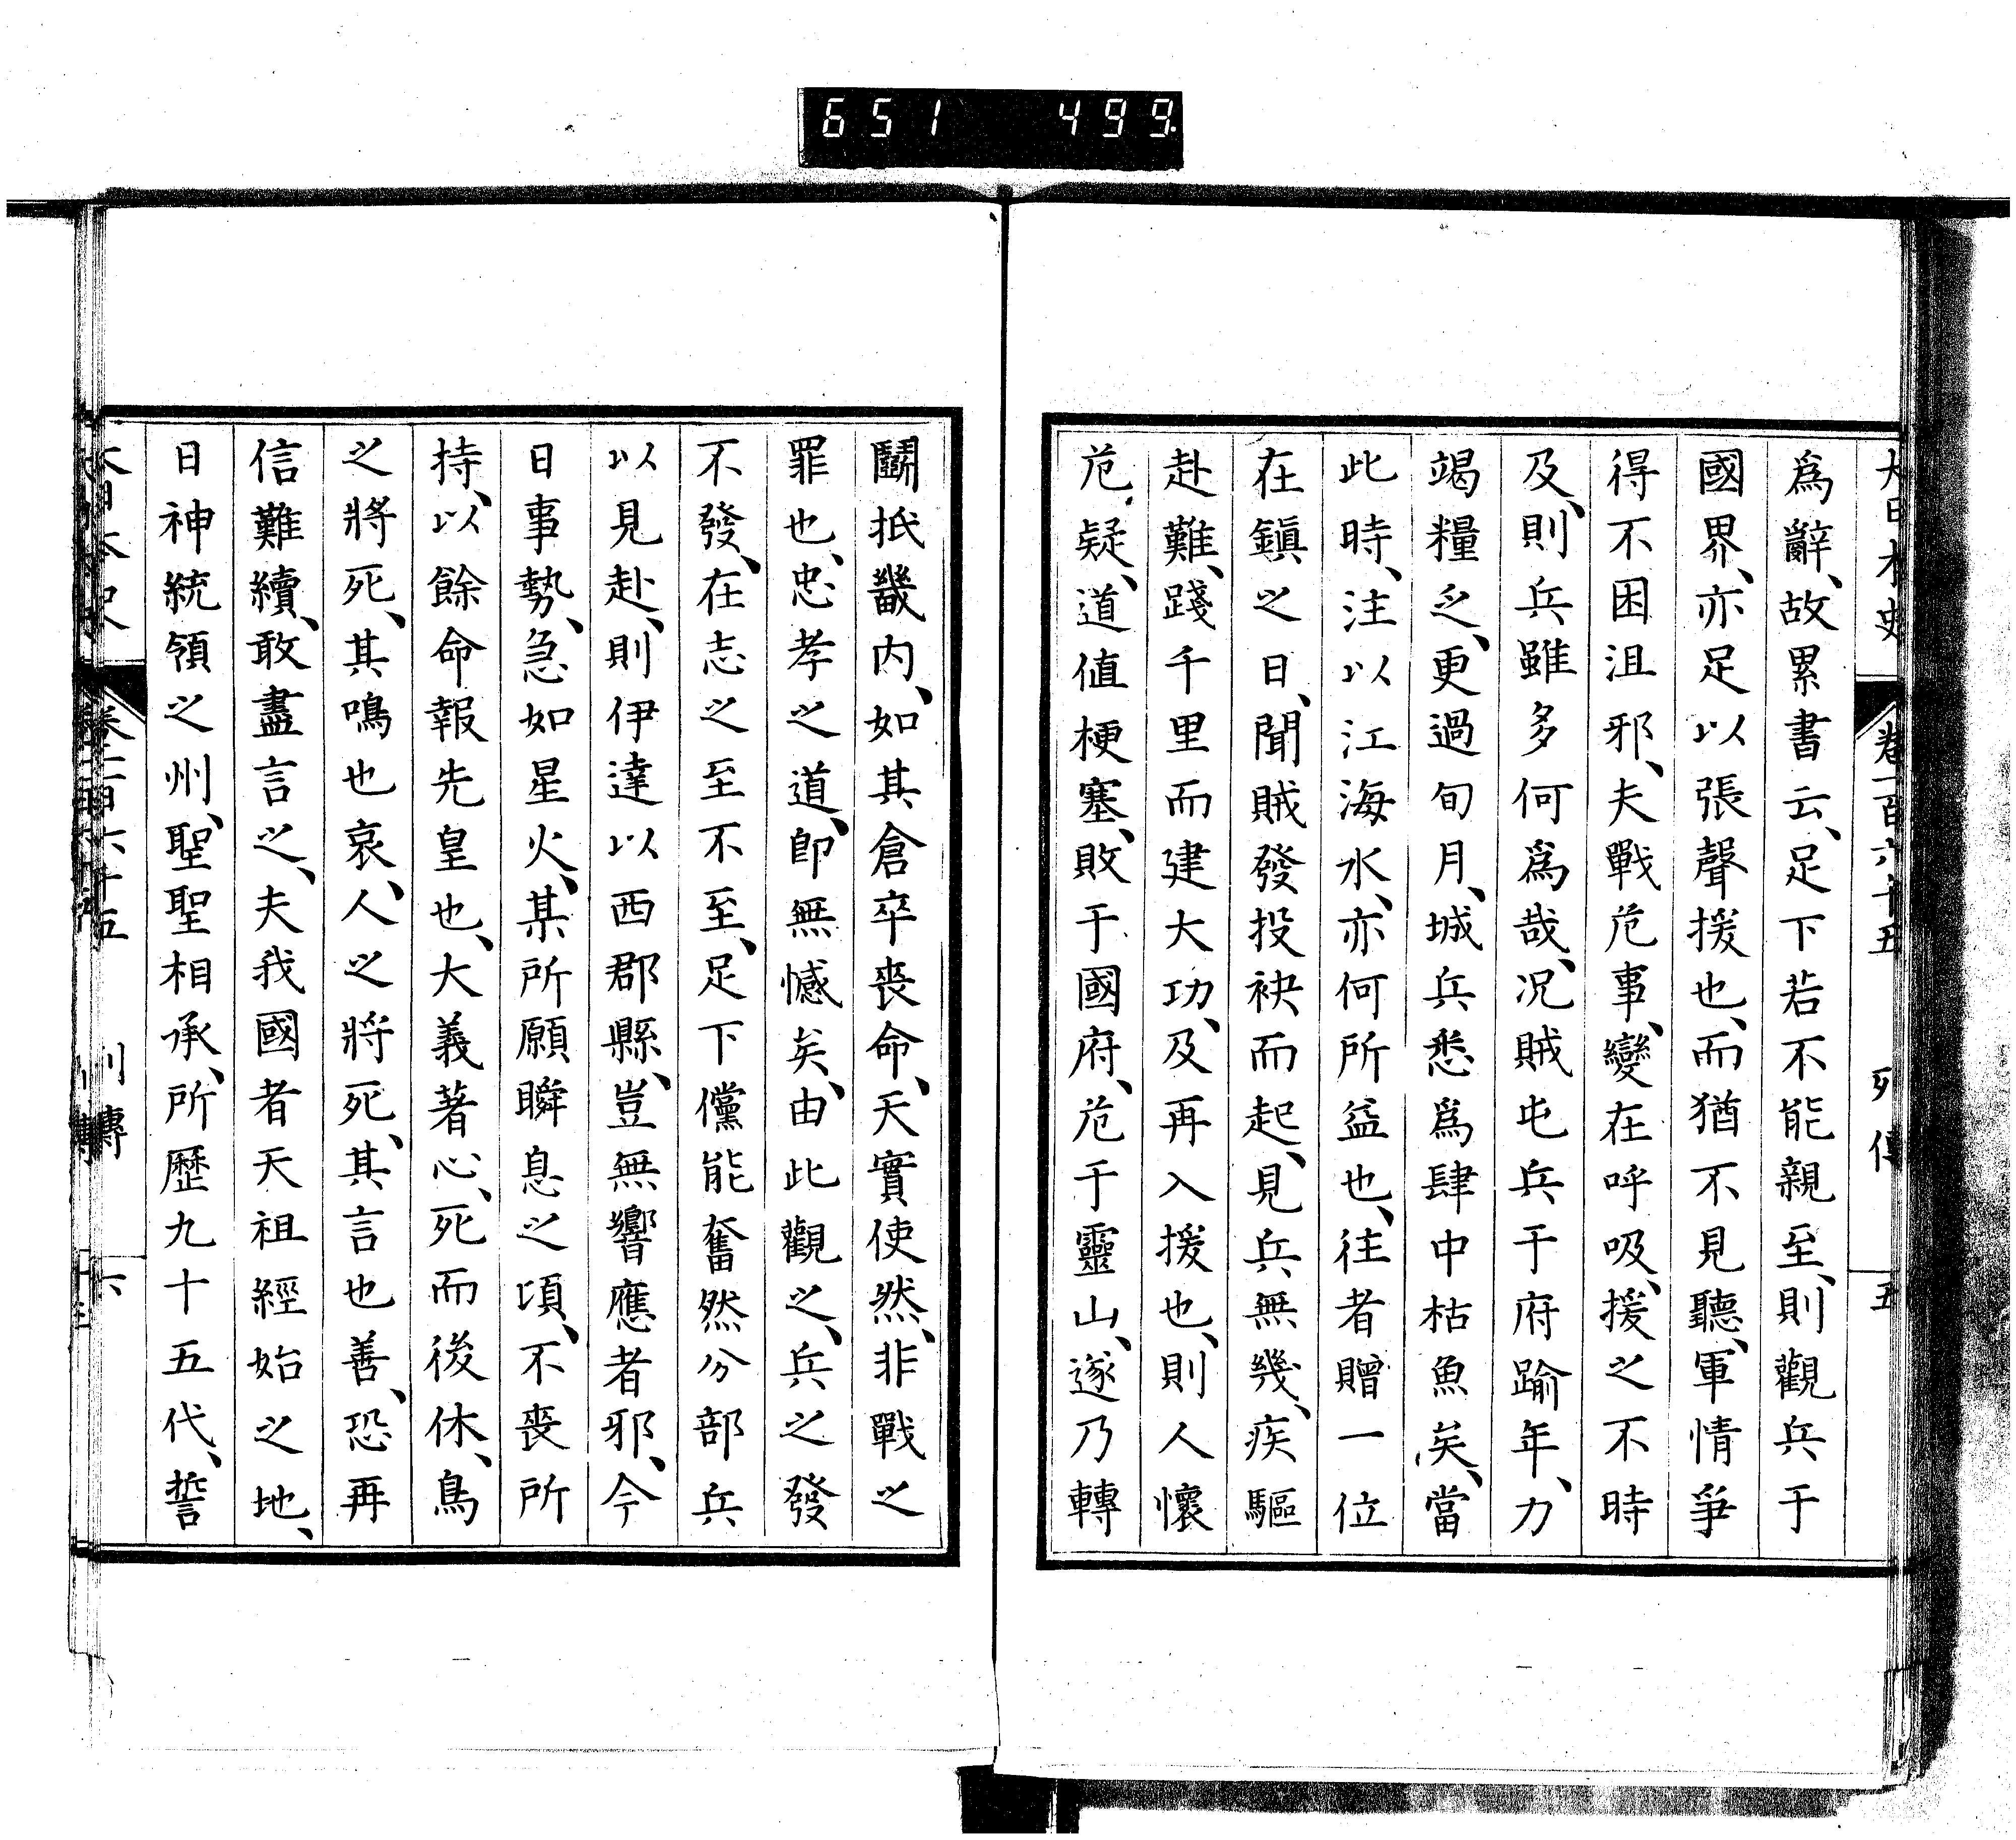 651 499.
大日本史 卷一百六十五 列傳 五
爲辭、故累書云、足下若不能親至、則觀兵于
國界、亦足以張聲援也、而猶不見聽、軍情爭
得不困沮邪、夫戰危事、變在呼吸、援之不時
及、則兵雖多何爲哉、況賊屯兵于府踰年、力
竭糧乏、更過旬月、城兵悉爲肆中枯魚矣、當
此時、注以江海水、亦何所益也、往者贈一位
在鎭之日、聞賊發投袂而起、見兵無幾、疾驅
赴難、踐千里而建大功、及再入援也、則人懷
危疑、道値梗塞、敗于國府、危于靈山、遂乃轉
鬬抵畿内、如其倉卒喪命、天實使然、非戰之
罪也、忠孝之道、卽無憾矣、由此觀之、兵之發
不發、在志之至不至、足下儻能奮然分部兵
以見赴、則伊達以西郡縣、豈無響應者邪、今
日事勢、急如星火、某所願瞬息之頃、不喪所
持、以餘命報先皇也、大義著心、死而後休、鳥
之將死、其鳴也哀、人之將死、其言也善、恐再
信難續、敢盡言之、夫我國者天祖經始之地、
日神統領之州、聖聖相承、所歷九十五代、誓
大日本史 卷一百六十五 列傳 六